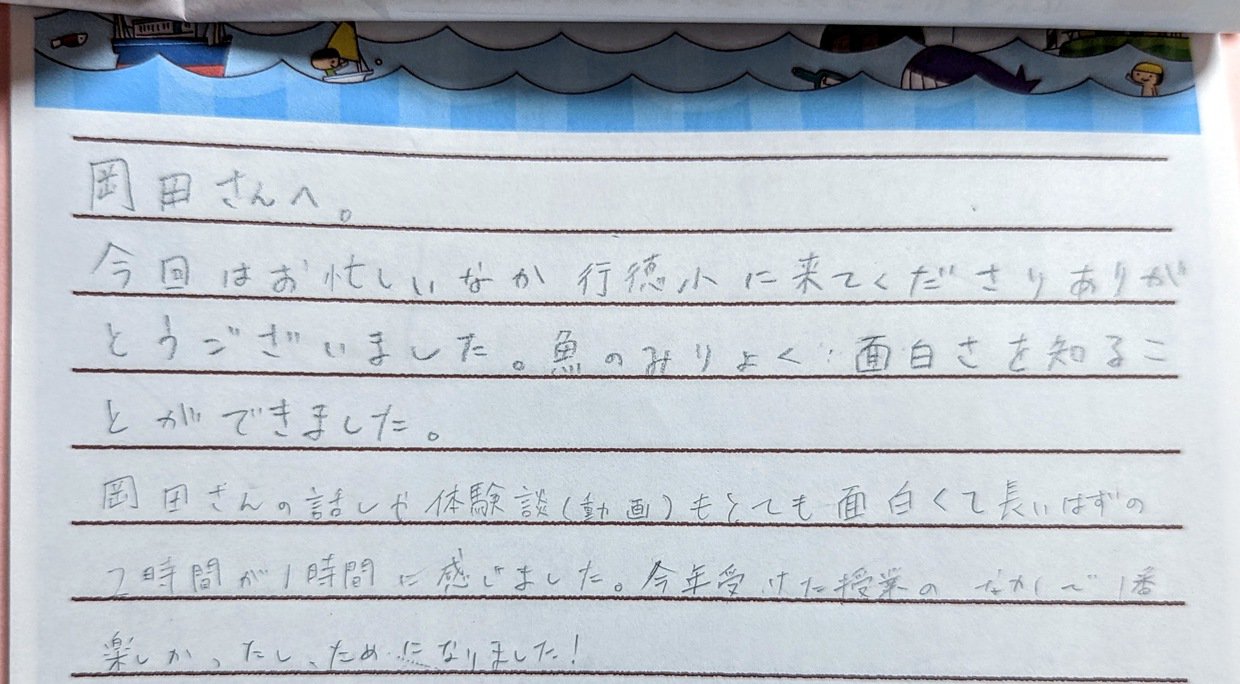 岡田さんへ。
今回はお忙しいなか行徳小に来てくださりありが
とうございました。魚のみりょく・面白さを知るこ
とができました。
岡田さんの話しや体験談(動画)もとても面白くて長いはずの
2時間が1時間に感じました。今年受けた授業のなかで1番
楽しかったし、ためになりました!